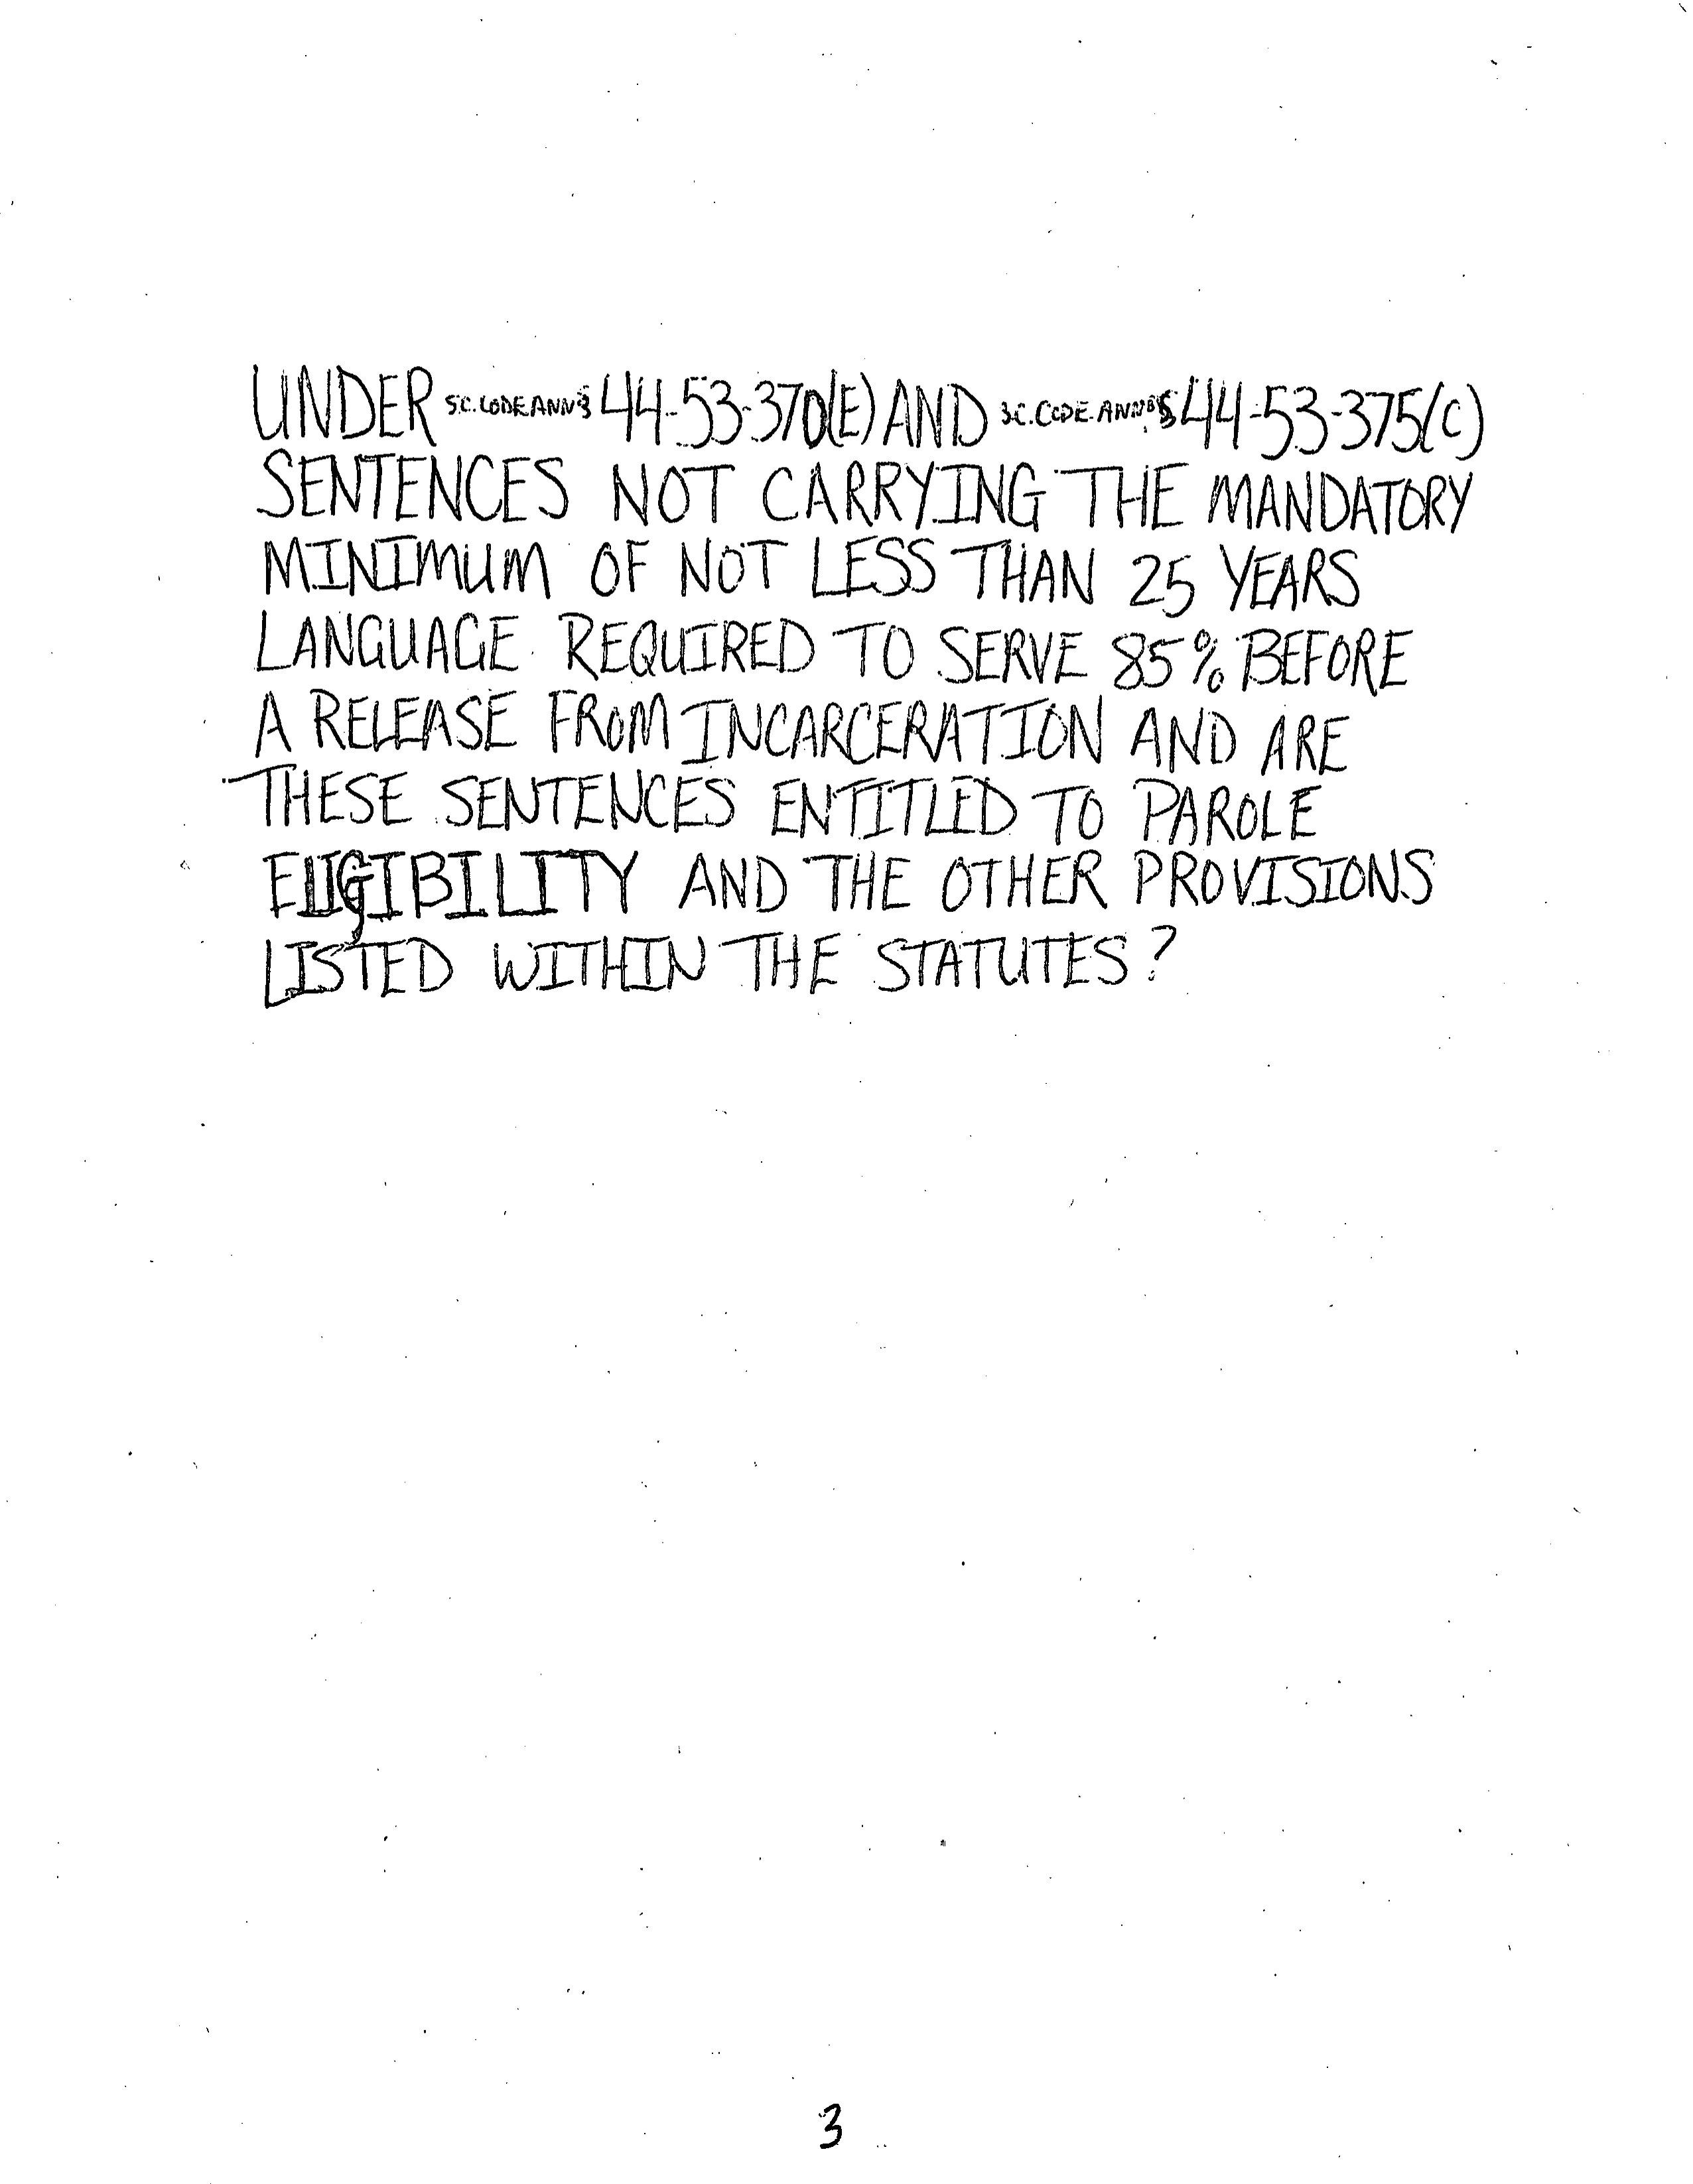 UNDER S.C. CODE ANN § 44-53-370(E) AND S.C. CODE ANN § 44-53-375(C)
SENTENCES NOT CARRYING THE MANDATORY
MINIMUM OF NOT LESS THAN 25 YEARS
LANGUAGE REQUIRED TO SERVE 85% BEFORE
A RELEASE FROM INCARCERATION AND ARE
THESE SENTENCES ENTITLED TO PAROLE
ELIGIBILITY AND THE OTHER PROVISIONS
LISTED WITHIN THE STATUTES?
3